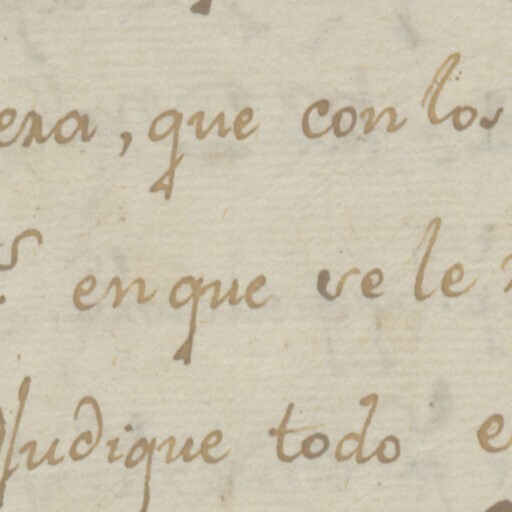 era, que con los
en que se le
Judique todo e